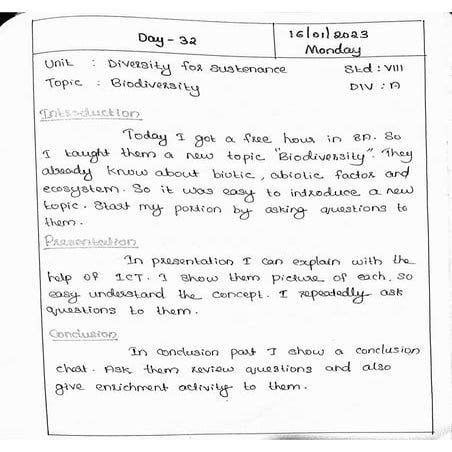 Day - 32
16/01/2023
Monday
Unit : Diversity for Sustenance
Std : VIII
Topic : Biodiversity
DIV : A
Introduction
Today I got a free hour in 8A. So
I taught them a new topic "Biodiversity". They
already know about biotic, abiotic factor and
ecosystem. So it was easy to introduce a new
topic. Start my portion by asking questions to
them.
Presentation
In presentation I can explain with the
help of ICT. I show them picture of each, so
easy understand the concept. I repeatedly ask
questions to them.
Conclusion
In conclusion part I show a conclusion
chat. Ask them review questions and also
give enrichment activity to them.